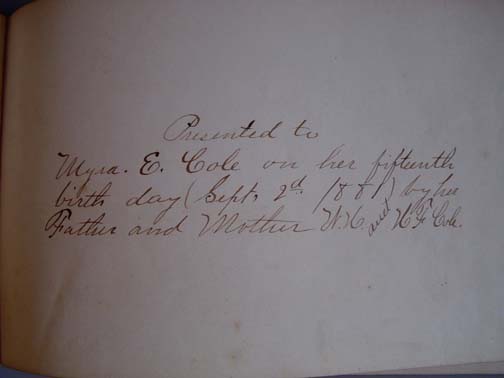 Presented to
Myra. E. Cole on her fifteenth
birth day (Sept. 2d. 1881) by her
Father and Mother W. H. and H. F. Cole.